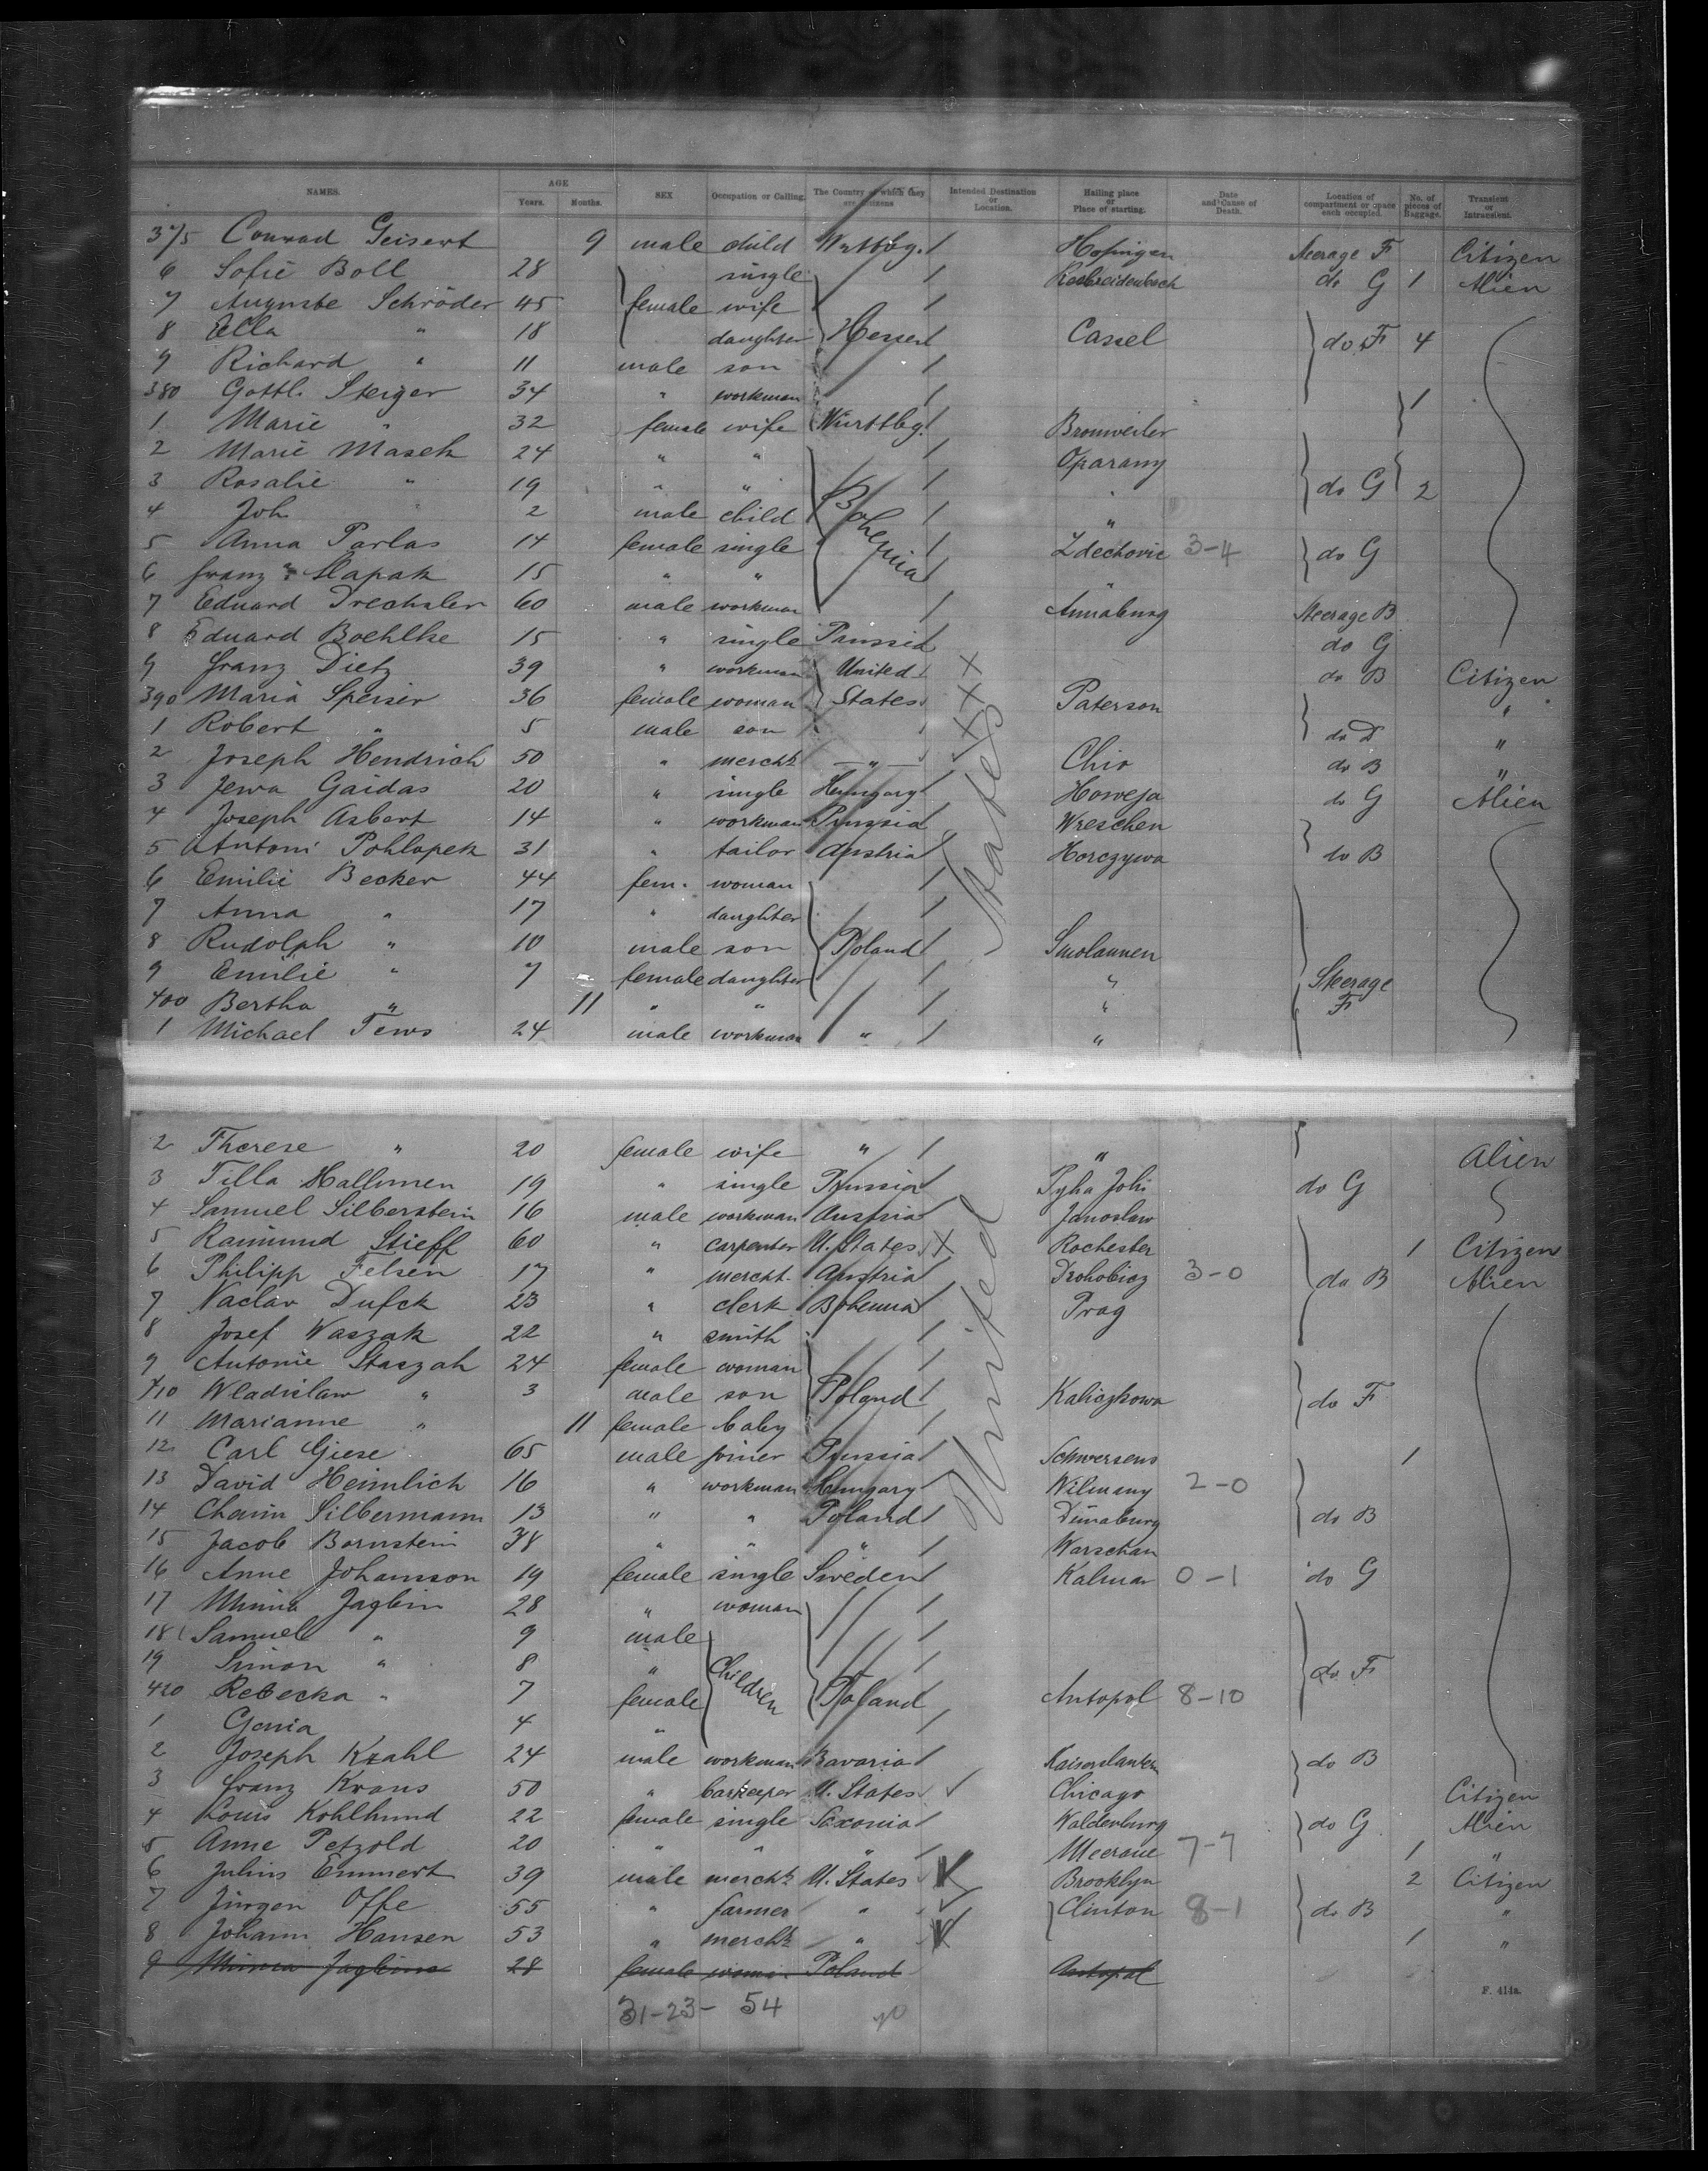 NAMES. AGE Years. Months. SEX Occupation or Calling. The Country of which they are citizens Intended Destination or Location. Hailing place or Place of starting. Date and Cause of Death. Location of compartment or space each occupied. No. of pieces of Baggage. Transient or Intransient.
375 Conrad Geisert 9 male child Wurttbg. Steerage F Citizen
6 Sofie Boll 28 single do G 1 Alien
7 Auguste Schröder 45 female wife
8 Ella " 18 daughter Hessen Cassel do F 4
9 Richard " 11 male son
380 Gottl. Steiger 34 " workman 1
1 Marie " 32 female wife Wurttbg. Bronweiler
2 Marie Masek 24 " " Oparany
3 Rosalie " 19 " " " do G 2
4 Joh. " 2 male child Bohemia "
5 Anna Parlas 14 female single Zdechovic 3-4 do G
6 Franz Slapak 15 " " "
7 Eduard Drechsler 60 male workman Annaburg Steerage B
8 Eduard Boehlke 15 " single Prussia do G
9 Franz Dietz 39 " workman United X do B Citizen
390 Maria Speiser 36 female woman States X Paterson "
1 Robert " 5 male son X do D "
2 Joseph Hendrich 50 " mercht — " — Ohio do B "
3 Jewa Gaidas 20 " single Hungary Howeja do G Alien
4 Joseph Asbert 14 " workman Prussia Wreschen
5 Antoni Pohlopek 31 " tailor Austria Horczywa do B
6 Emilie Becker 44 fem. woman States
7 Anna " 17 " daughter
8 Rudolph " 10 male son Poland Smolannen
9 Emilie " 7 female daughter " Steerage
400 Bertha " 11 " " " F
1 Michael Tews 24 male workman " "
2 Therese " 20 female wife " " Alien
3 Tilla Hallmen 19 " single Prussia Pyha Johi do G
4 Samuel Silberstein 16 male workman Austria Janoslaw
5 Raimund Stieff 60 " carpenter U. States X Rochester 1 Citizen
6 Philipp Felsen 17 " mercht. Austria Drohobicz 3-0 do B Alien
7 Vaclav Dufek 23 " clerk Bohemia Prag
8 Josef Waszak 22 " smith United
9 Antonie Staszak 24 female woman
410 Wladislaw " 3 male son Poland Kaliczkowa do F
11 Marianne " 11 female baby
12 Carl Giese 65 male joiner Prussia Schwersens 1
13 David Heimlich 16 " workman Hungary Wilmany 2-0
14 Chaim Silbermann 13 " " Poland Dünaburg do B
15 Jacob Bornstein 38 " " " Warschau
16 Anne Johansson 19 female single Sweden Kalmar 0-1 do G
17 Minna Jaglin 28 " woman
18 Samuel " 9 male
19 Simon " 8 " Children do F
420 Rebecka " 7 female Poland Antopol 8-10
1 Genia 4 "
2 Joseph Krahl 24 male workman Bavaria Kaiserslautern do B
3 Franz Kraus 50 " barkeeper U. States ✓ Chicago Citizen
4 Louis Kohlhund 22 female single Saxonia Waldenburg do G Alien
5 Anne Petzold 20 " " " Meerane 7-7 1 "
6 Julius Emmert 39 male mercht U. States Brooklyn 2 Citizen
7 Jürgen Offe 55 " farmer " ✓ Clinton 8-1 do B "
8 Johann Hansen 53 " mercht " 1 "
9 Minna Jaglin 28 female woman Poland Antopol
F. 414a.
31-23- 54